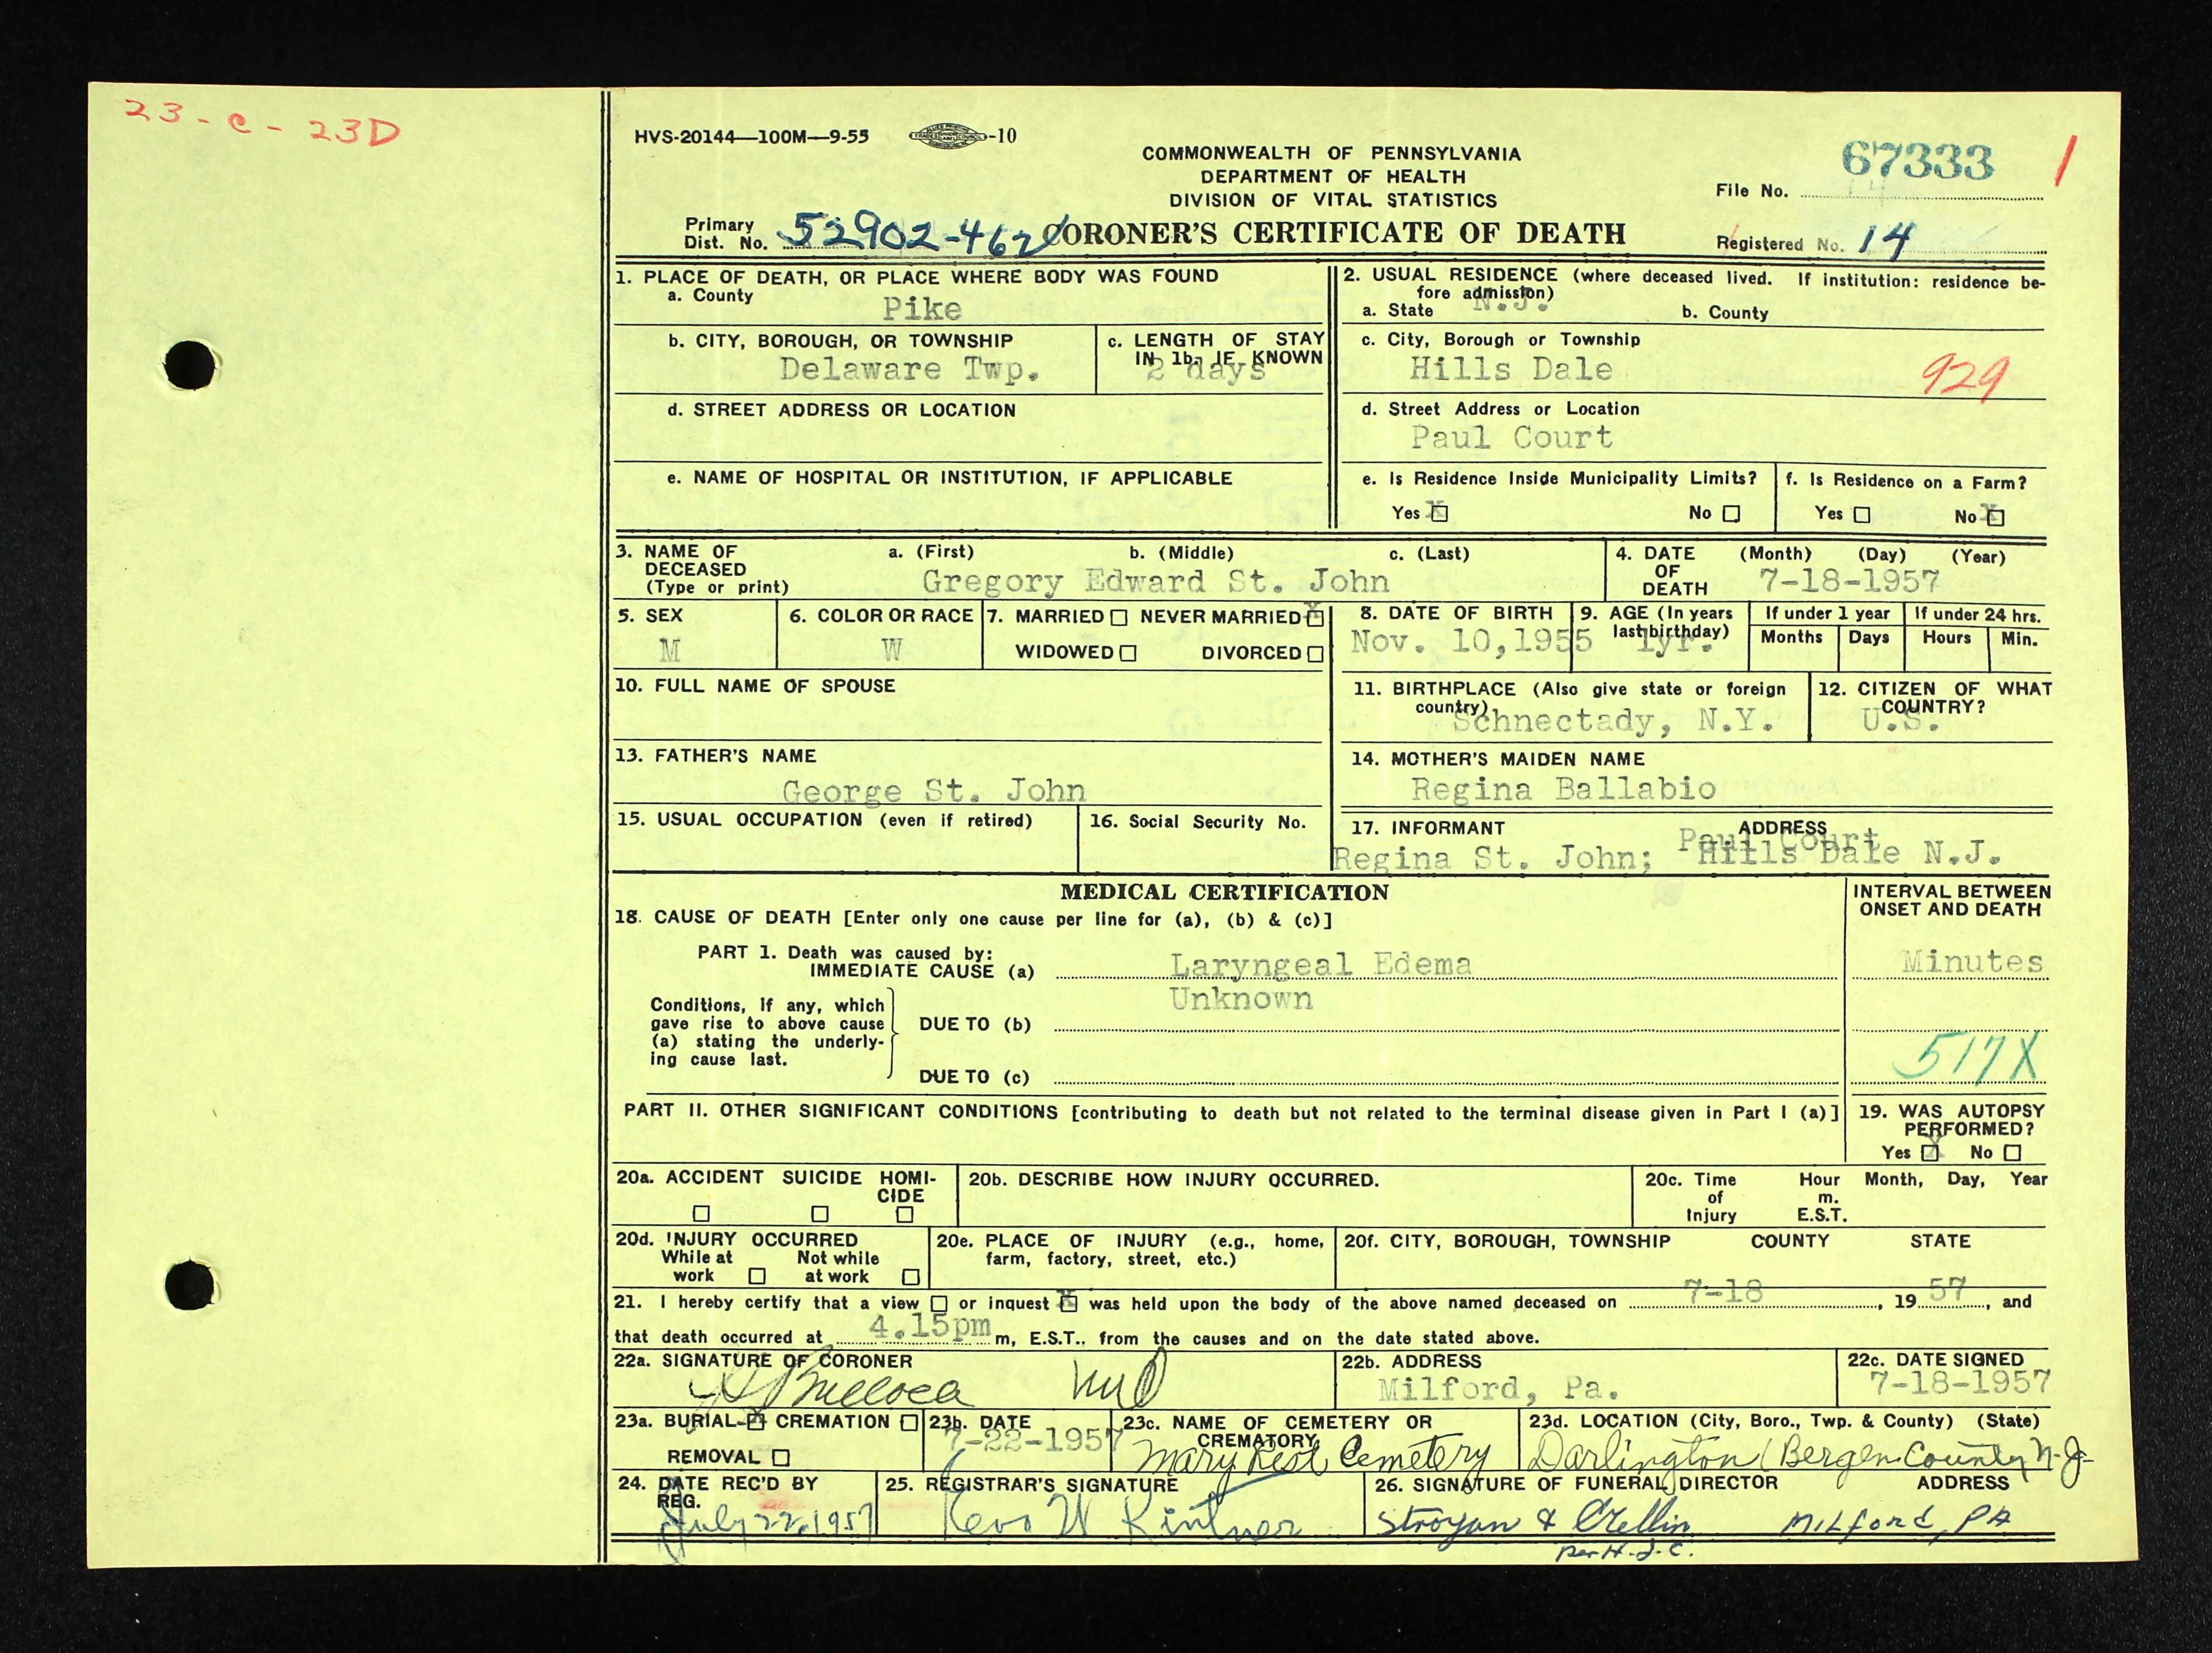 23-C-23D
HVS-20144—100M—9-55 -10
COMMONWEALTH OF PENNSYLVANIA
DEPARTMENT OF HEALTH
DIVISION OF VITAL STATISTICS
67333 1
File No.
Primary Dist. No. 52902-462
CORONER'S CERTIFICATE OF DEATH
Registered No. 14
1. PLACE OF DEATH, OR PLACE WHERE BODY WAS FOUND
a. County
Pike
2. USUAL RESIDENCE (where deceased lived. If institution: residence be-
fore admission)
a. State N.J. b. County
b. CITY, BOROUGH, OR TOWNSHIP
Delaware Twp.
c. LENGTH OF STAY
IN 1b, IF KNOWN
2 days
c. City, Borough or Township
Hills Dale
929
d. STREET ADDRESS OR LOCATION
d. Street Address or Location
Paul Court
e. NAME OF HOSPITAL OR INSTITUTION, IF APPLICABLE
e. Is Residence Inside Municipality Limits?
Yes X No
f. Is Residence on a Farm?
Yes No X
3. NAME OF DECEASED (Type or print)
a. (First) b. (Middle) c. (Last)
Gregory Edward St. John
4. DATE OF DEATH (Month) (Day) (Year)
7-18-1957
5. SEX
M
6. COLOR OR RACE
W
7. MARRIED NEVER MARRIED X
WIDOWED DIVORCED
8. DATE OF BIRTH
Nov. 10,1955
9. AGE (In years
last birthday)
1yr.
If under 1 year
Months Days
If under 24 hrs.
Hours Min.
10. FULL NAME OF SPOUSE
11. BIRTHPLACE (Also give state or foreign
country)
Schnectady, N.Y.
12. CITIZEN OF WHAT
COUNTRY?
U.S.
13. FATHER'S NAME
George St. John
14. MOTHER'S MAIDEN NAME
Regina Ballabio
15. USUAL OCCUPATION (even if retired)
16. Social Security No.
17. INFORMANT ADDRESS
Paul Court
Regina St. John; Hills Dale N.J.
MEDICAL CERTIFICATION
INTERVAL BETWEEN
ONSET AND DEATH
18. CAUSE OF DEATH [Enter only one cause per line for (a), (b) & (c)]
PART 1. Death was caused by:
IMMEDIATE CAUSE (a) Laryngeal Edema Minutes
Unknown
Conditions, if any, which
gave rise to above cause
(a) stating the underly-
ing cause last.
DUE TO (b)
DUE TO (c)
517X
PART II. OTHER SIGNIFICANT CONDITIONS [contributing to death but not related to the terminal disease given in Part I (a)]
19. WAS AUTOPSY
PERFORMED?
Yes X No
20a. ACCIDENT SUICIDE HOMI-
CIDE
20b. DESCRIBE HOW INJURY OCCURRED.
20c. Time of Injury Hour m. E.S.T. Month, Day, Year
20d. INJURY OCCURRED
While at work Not while at work
20e. PLACE OF INJURY (e.g., home,
farm, factory, street, etc.)
20f. CITY, BOROUGH, TOWNSHIP COUNTY STATE
21. I hereby certify that a view or inquest X was held upon the body of the above named deceased on 7-18, 19 57, and
that death occurred at 4.15pm m, E.S.T., from the causes and on the date stated above.
22a. SIGNATURE OF CORONER
MD
22b. ADDRESS
Milford, Pa.
22c. DATE SIGNED
7-18-1957
23a. BURIAL- X CREMATION
REMOVAL
23b. DATE
7-22-1957
23c. NAME OF CEMETERY OR
CREMATORY
Mary Rest Cemetery
23d. LOCATION (City, Boro., Twp. & County) (State)
Darlington (Bergen County N-J-
24. DATE REC'D BY
REG.
July 22, 1957
25. REGISTRAR'S SIGNATURE
Kintner
26. SIGNATURE OF FUNERAL DIRECTOR ADDRESS
Stroyan & Crellin Milford, PA
Per H.J.C.